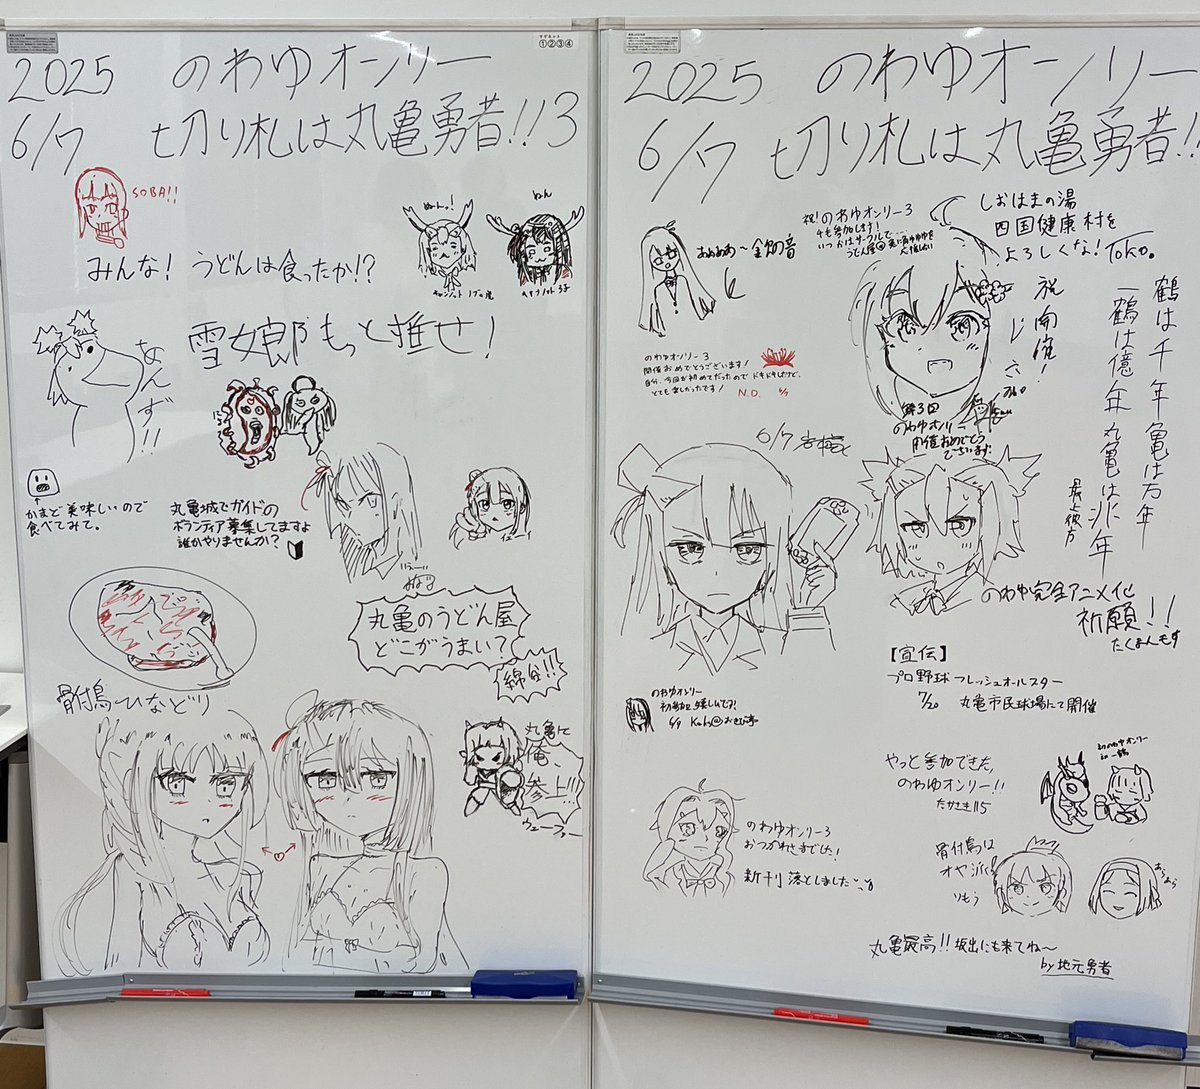 2025 のわゆオンリー
6/7 切り札は丸亀勇者!!3
SOBA!!
みんな! うどんは食ったか!?
ぬん
雪女郎もっと推せ!
なんず!!
かまど美味しいので
食べてみて。
丸亀城でガイドの
ボランティア募集してますよ
誰かやりませんか?
丸亀のうどん屋
どこがうまい?
綿谷!!!
骨付鳥ひなどり
丸亀に
俺、
参上!!!
2025 のわゆオンリー
6/7 切り札は丸亀勇者!!
祝!のわゆオンリー3
4も参加します!
いつかはサークルで…
しおはまの湯
四国健康村を
よろしくな! Toko.
祝開催!
鶴は千年亀は万年
一鶴は億年丸亀は兆年
のわゆオンリー3
開催おめでとうございます!
自分、今回が初めてだったのでドキドキしたけど、
とても楽しかったです!
N.D. 6/7
第3回
のわゆオンリー
開催おめでとう
ございます!
6/7
のわゆ完全アニメ化
祈願!!
たくまんもす
【宣伝】
プロ野球フレッシュオールスター
7/20 丸亀市民球場にて開催
のわゆオンリー
初参加嬉しいです!
やっと参加できた、
のわゆオンリー!!
たかさき115
初のわゆオンリー
in 一鶴
のわゆオンリー3
おつかれさまでした!
新刊落としました
骨付鳥は
オヤ派!
りもう
あらあら
丸亀最高!!坂出にも来てね〜
by 地元勇者